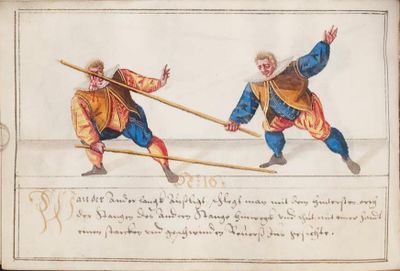 N: 16.
Wan der Ander langk außligt, schlegt man mit dem hindersten ortt
der Stangen des andern Stange hinwegk vnd thut mit einer handt
einen starcken vnd geschwinden zum gesichte.